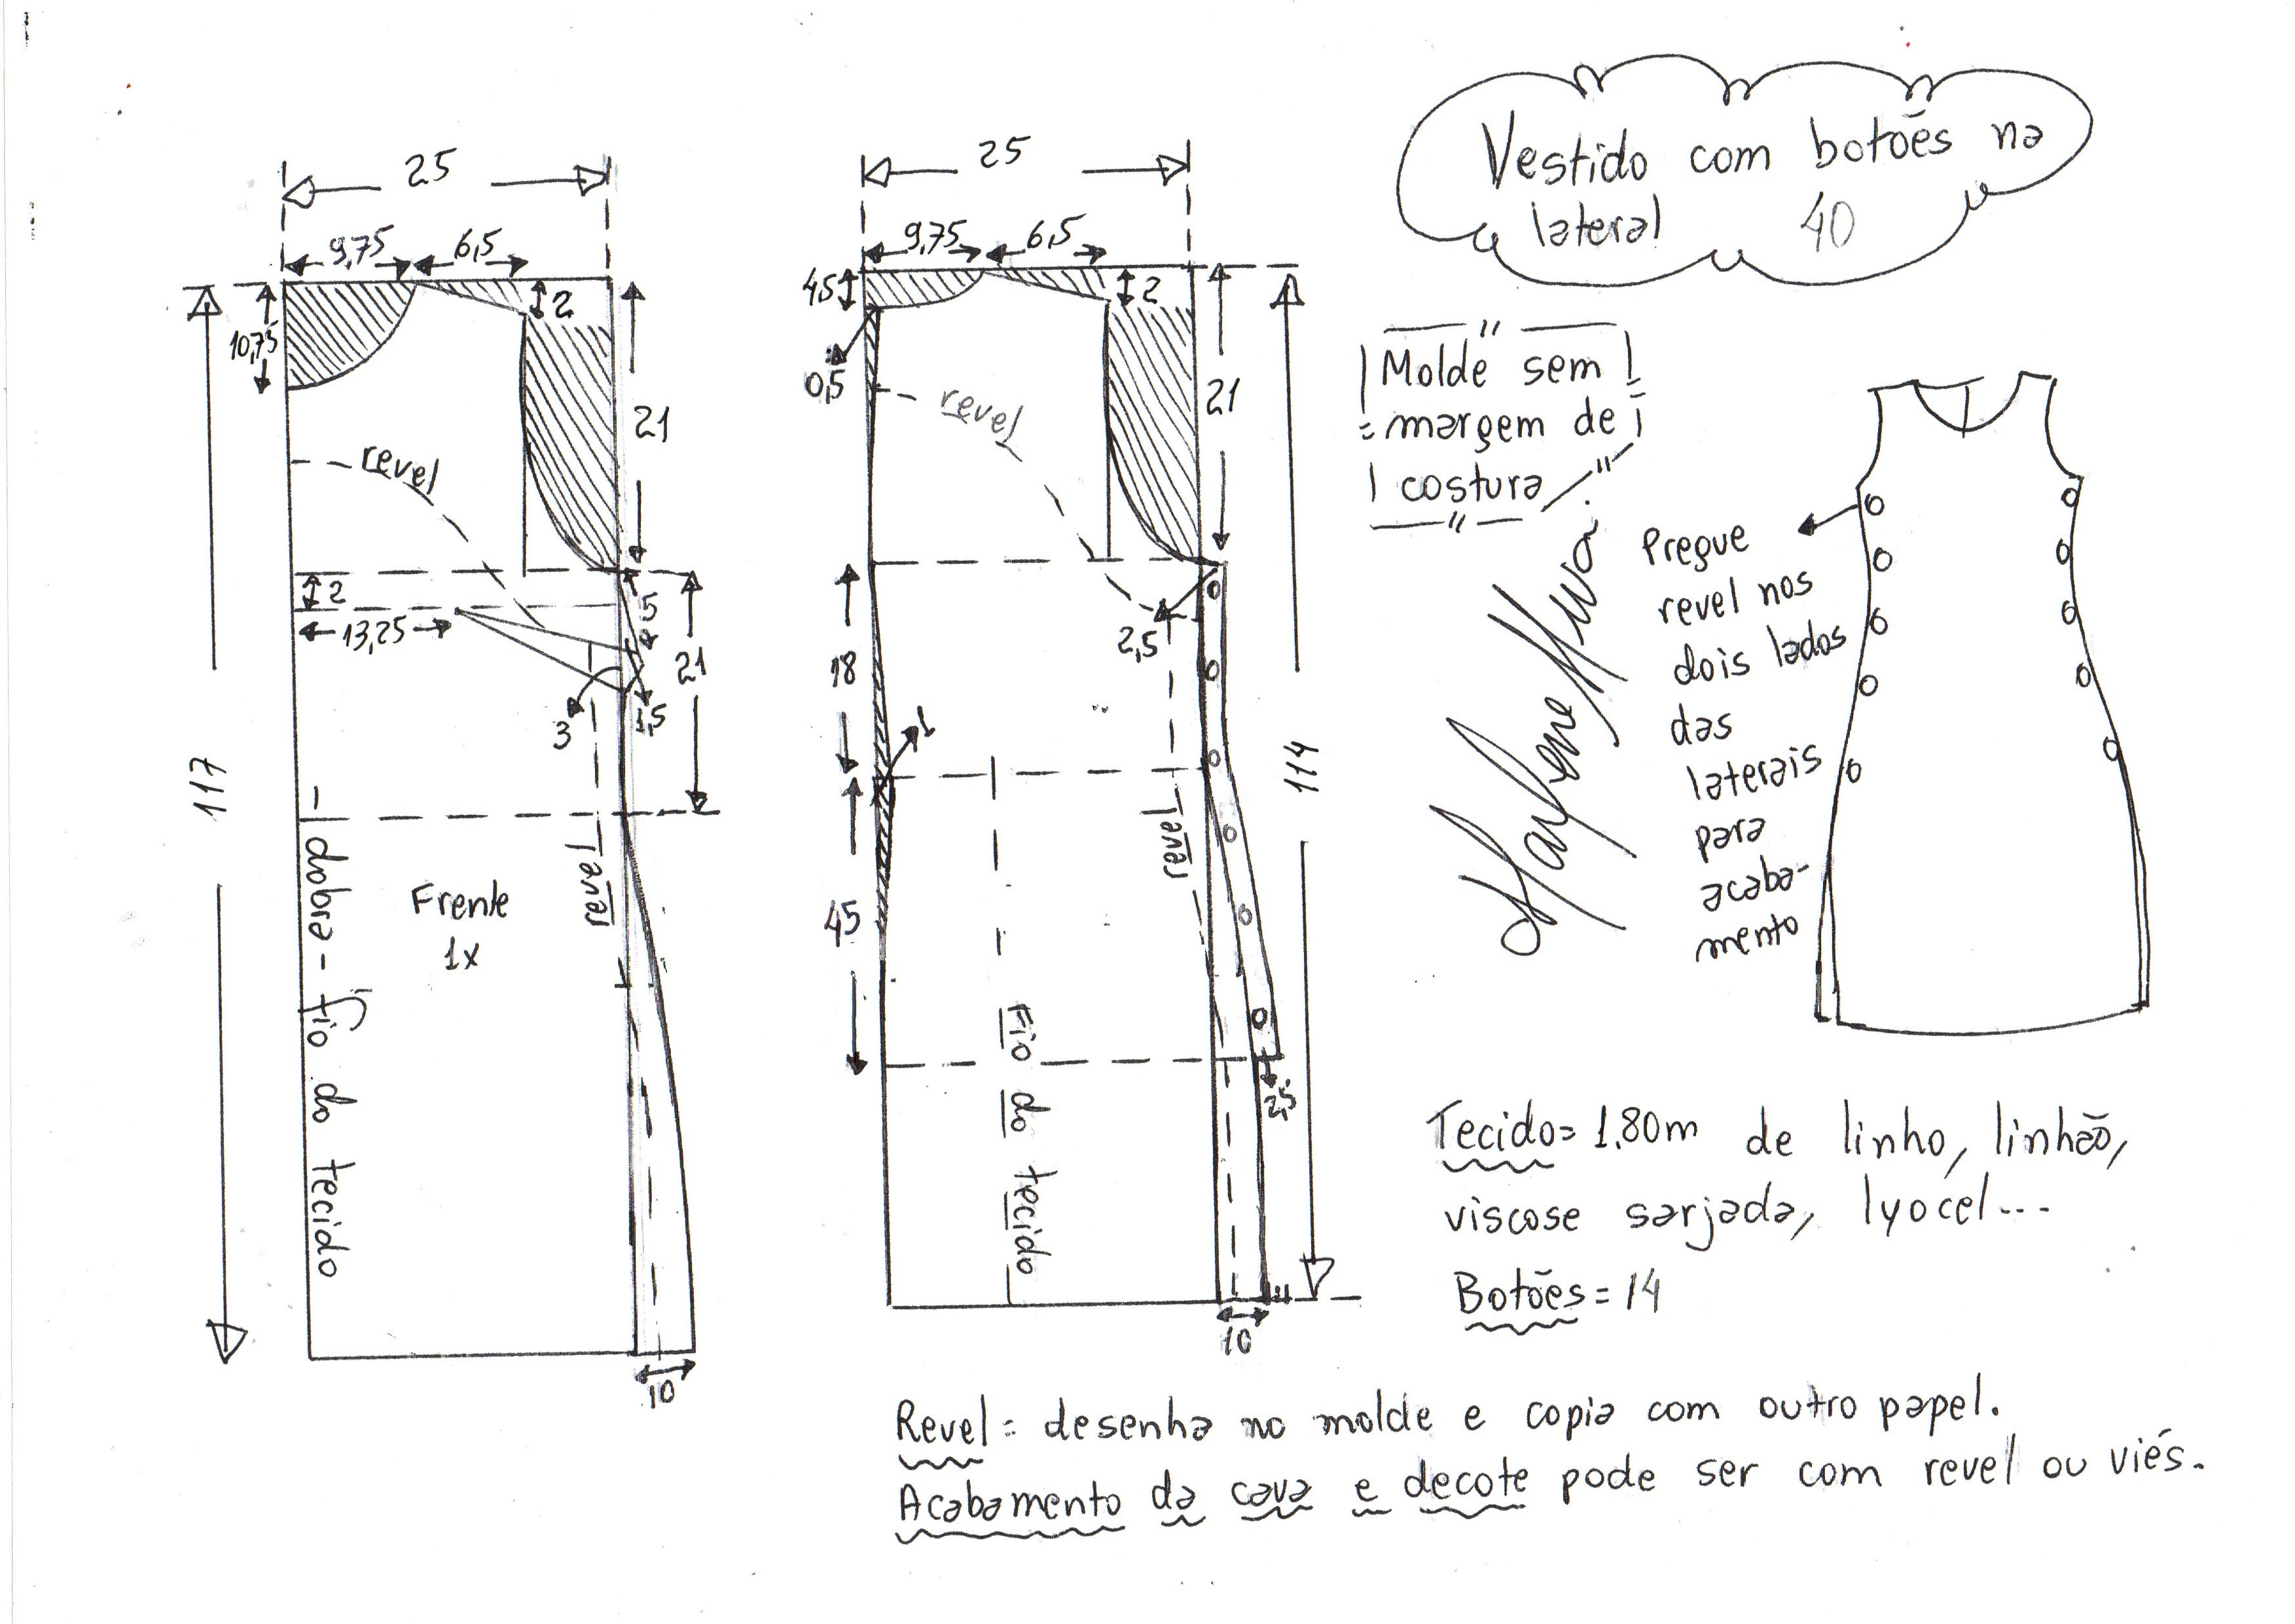 Vestido com botões na
lateral 40
25
9,75 6,5
2
10,75
21
revel
2
13,25
5
21
3
1,5
117
revel
Frente
1x
dobra - fio do tecido
10
25
9,75 6,5
4,5
2
0,5
21
revel
2,5
18
1
114
revel
45
Fio do tecido
2,5
10
Molde sem
margem de
costura
Marlene Mukai
Pregue
revel nos
dois lados
das
laterais
para
acaba-
mento
Tecido = 1,80m de linho, linhão,
viscose sarjada, lyocel...
Botões = 14
Revel = desenha no molde e copia com outro papel.
Acabamento da cava e decote pode ser com revel ou viés.